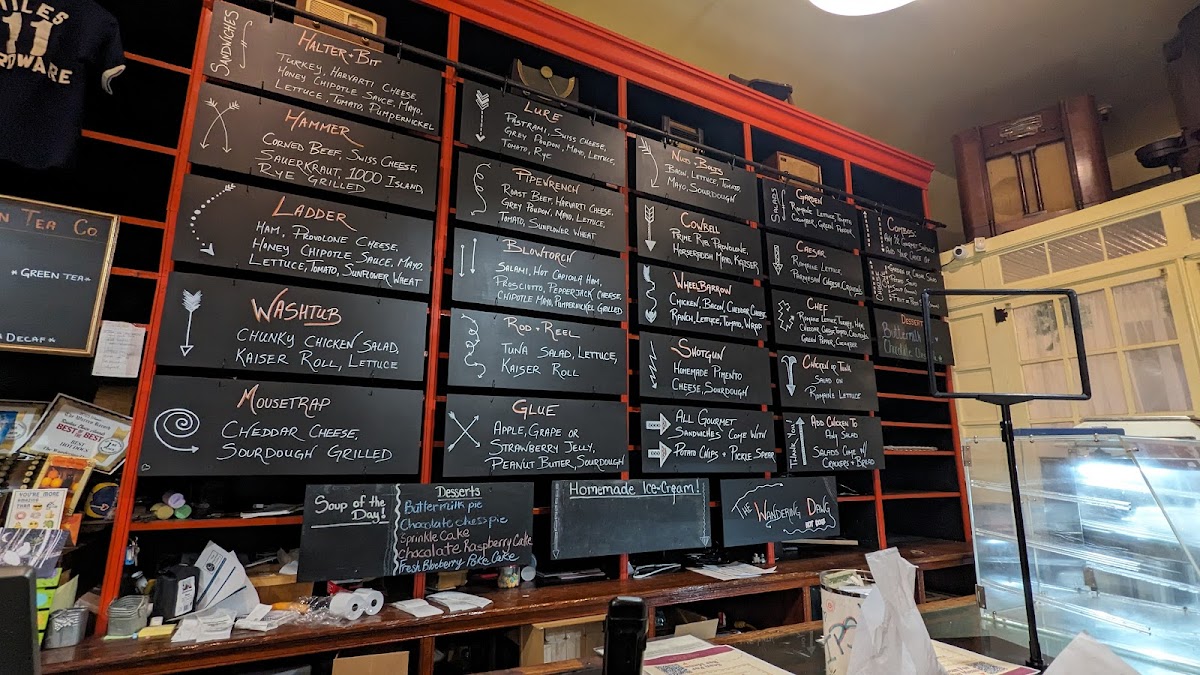 MILES
11
HARDWARE
Tea Co
*Green Tea*
Decaf*
Sandwiches
Halter + Bit
Turkey, Havarti Cheese,
Honey Chipotle Sauce, Mayo,
Lettuce, Tomato, Pumpernickel
Hammer
Corned Beef, Swiss Cheese,
Sauerkraut, 1000 Island
Rye Grilled
Ladder
Ham, Provolone Cheese,
Honey Chipotle Sauce, Mayo,
Lettuce, Tomato, Sunflower Wheat
Washtub
Chunky Chicken Salad,
Kaiser Roll, Lettuce
Mousetrap
Cheddar Cheese,
Sourdough Grilled
Lure
Pastrami, Swiss Cheese,
Grey Poupon, Mayo, Lettuce,
Tomato, Rye
Pipewrench
Roast Beef, Havarti Cheese,
Grey Poupon, Mayo, Lettuce,
Tomato, Sunflower Wheat
Blowtorch
Salami, Hot Capicola Ham,
Prosciutto, Pepperjack Cheese,
Chipotle Mayo, Pumpernickel Grilled
Rod + Reel
Tuna Salad, Lettuce,
Kaiser Roll
Glue
Apple, Grape or
Strawberry Jelly,
Peanut Butter, Sourdough
Nuts + Bolts
Bacon, Lettuce, Tomato,
Mayo, Sourdough
Cowbell
Prime Rib, Provolone,
Horseradish Mayo, Kaiser
Wheelbarrow
Chicken, Bacon, Cheddar Cheese,
Ranch, Lettuce, Tomato, Wrap
Shotgun
Homemade Pimento
Cheese, Sourdough
All Gourmet
Sandwiches Come With
Potato Chips + Pickle Spear
Salads
Garden
Romaine Lettuce, Tomato
Cucumber, Green Pepper
Caesar
Romaine Lettuce,
Parmesan Cheese, Croutons
Chef
Romaine Lettuce, Turkey, Ham,
Cheddar Cheese, Tomato, Croutons,
Green Pepper, Cucumber
Chicken or Tuna
Salad on
Romaine Lettuce
Thank You!
Add Chicken to
Any Salad
Salads Come w/
Crackers + Bread
Combos:
Dessert
Buttermilk
Chocolate
Soup of the
Day!
Desserts
Buttermilk pie
Chocolate chess pie
Sprinkle Cake
Chocolate Raspberry Cake
Fresh Blueberry Poke Cake
Homemade Ice-Cream!
The Wandering Dawg
Hot Dogs
Best of the Best